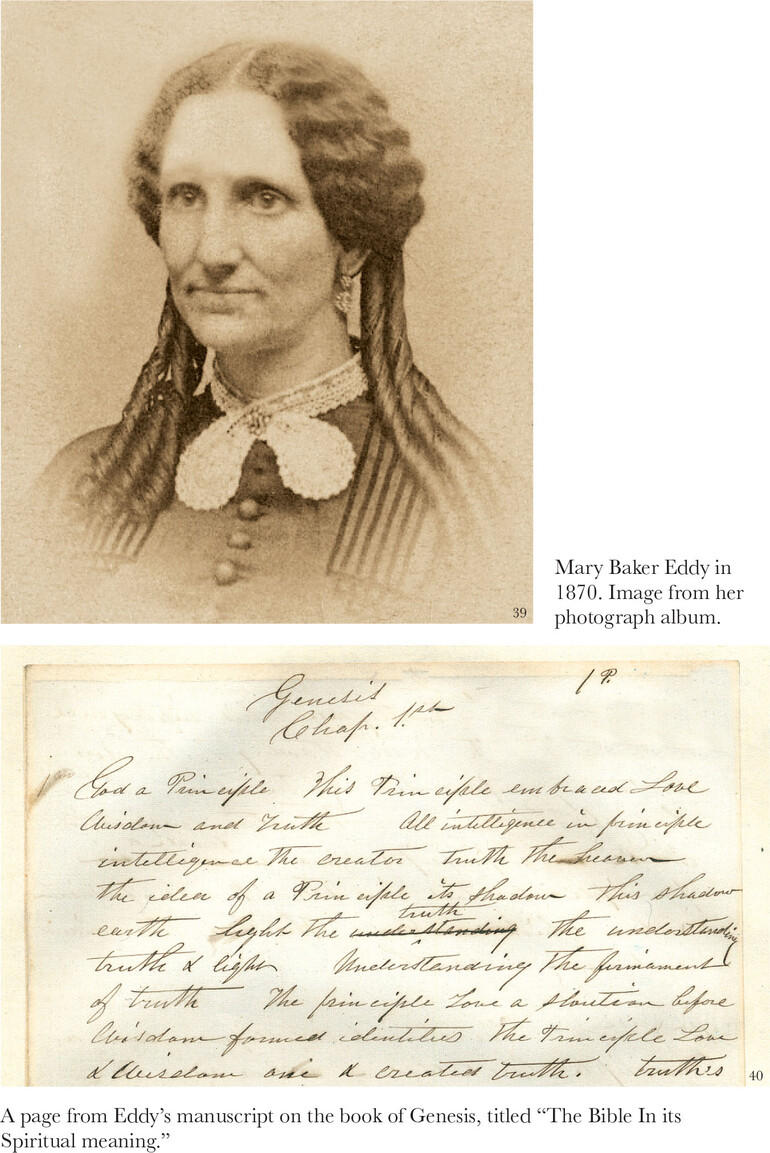 39
Mary Baker Eddy in
1870. Image from her
photograph album.
1 P.
Genesis
Chap. 1.st
God a Principle This Principle embraced Love
Wisdom and Truth All intelligence in principle
intelligence the creator truth the heaven
the idea of a Principle its shadow this shadow
truth
earth light the understanding the understanding
truth & light Understanding the firmament
of truth The principle Love a before
Wisdom formed identities The Principle Love
& Wisdom one & created truth. truth's
40
A page from Eddy’s manuscript on the book of Genesis, titled “The Bible In its
Spiritual meaning.”